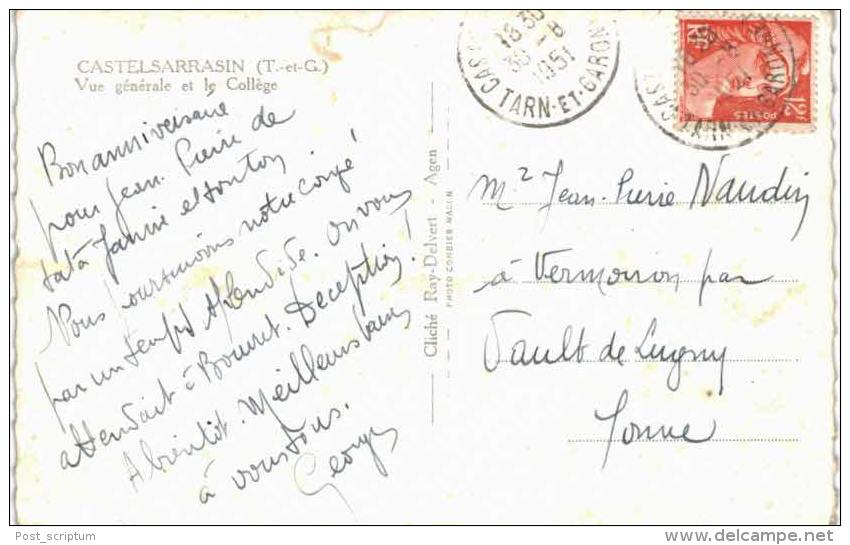 CASTELSARRASIN (T.-et-G.)
Vue générale et le Collège
Bon anniversaire
pour Jean. Pierre de
tata Janine et tonton
Nous poursuivons notre congé
par un temps splendide. On vous
attendait à Bourret. Déception !
A bientôt. Meilleurs baisers
à vous tous.
Georges
Cliché Ray-Delvert - Agen
PHOTO COMBIER MACON
18 30
30 - 8
1951
CAS TARN-ET-GARON
12F
POSTES
Mr Jean-Pierre Naudin
à Vermoiron par
Vault de Lugny
Yonne
Post_scriptum
www.delcampe.net